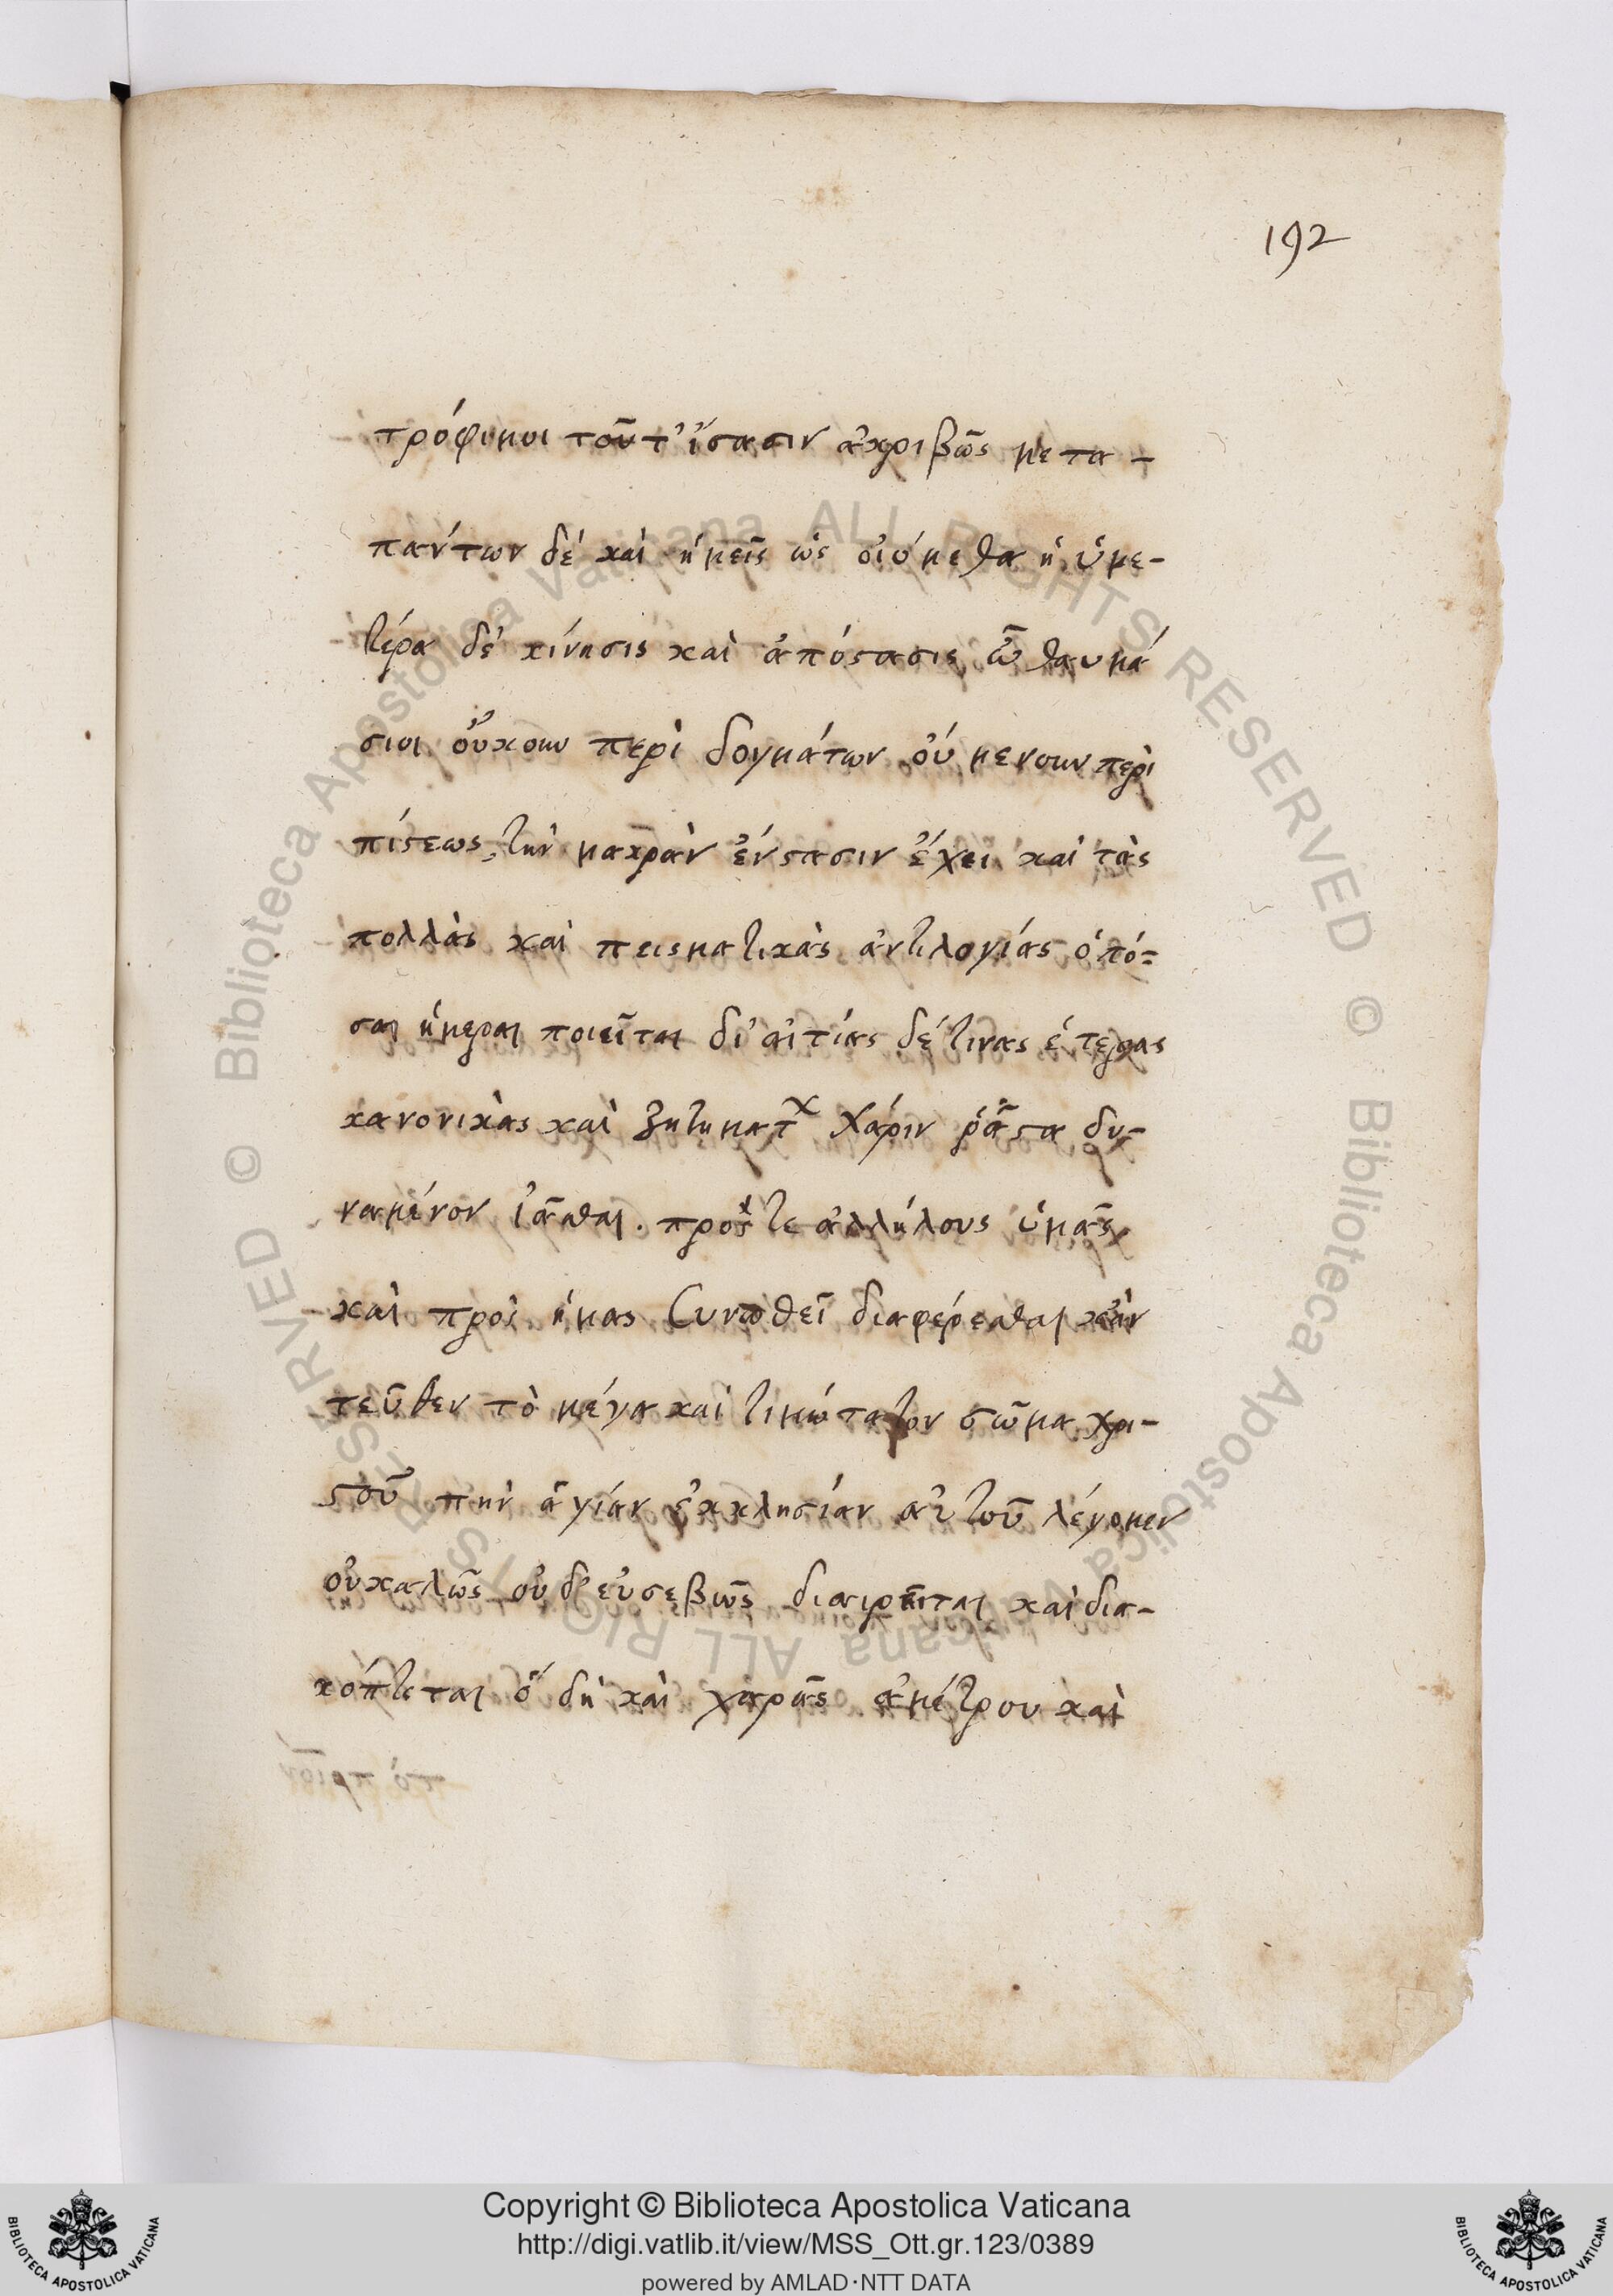 192
τρόφιμοι τοῦτ' ἴσασιν ἀκριβῶς μετα-
πάντων δέ καὶ ἡμεῖς ὡς οἰόμεθα ἡ ὑμε-
τέρα δέ κίνησις καὶ ἀπόστασις ὦ θαυμά
σιοι οὔκουν περὶ δογμάτων οὐ μενουν περὶ
πίστεως, τὴν μακρὰν ἔνστασιν ἔχει καὶ τὰς
πολλὰς καὶ πεισματικὰς ἀντιλογίας ὁπό-
σαι ἡμέραι ποιεῖται δι' αἰτίας δέ τινας ἑτερας
κανονικὰς καὶ ζητηματ χάριν ῥᾷστα δυ-
ναμένον ἰᾶσθαι. πρός τε ἀλλήλους ὑμᾶς
καὶ πρὸς ἡμας συνωθεῖ διαφέρεσθαι κἀν
τεῦθεν τὸ μέγα καὶ τιμώτατον σῶμα χρι-
στοῦ τὴν ἁγίαν ἐκκλησίαν αὐτοῦ λέγομεν
οὐ καλῶς οὐδ' εὐσεβῶς διαιρεῖται καὶ δια-
κόπτεται ὅ δὴ καὶ χαρᾶς ἀμέτρου καὶ
Copyright © Biblioteca Apostolica Vaticana
http://digi.vatlib.it/view/MSS_Ott.gr.123/0389
powered by AMLAD·NTT DATA
BIBLIOTECA APOSTOLICA VATICANA
BIBLIOTECA APOSTOLICA VATICANA
© Biblioteca Apostolica Vaticana ALL RIGHTS RESERVED
© Biblioteca Apostolica Vaticana ALL RIGHTS RESERVED